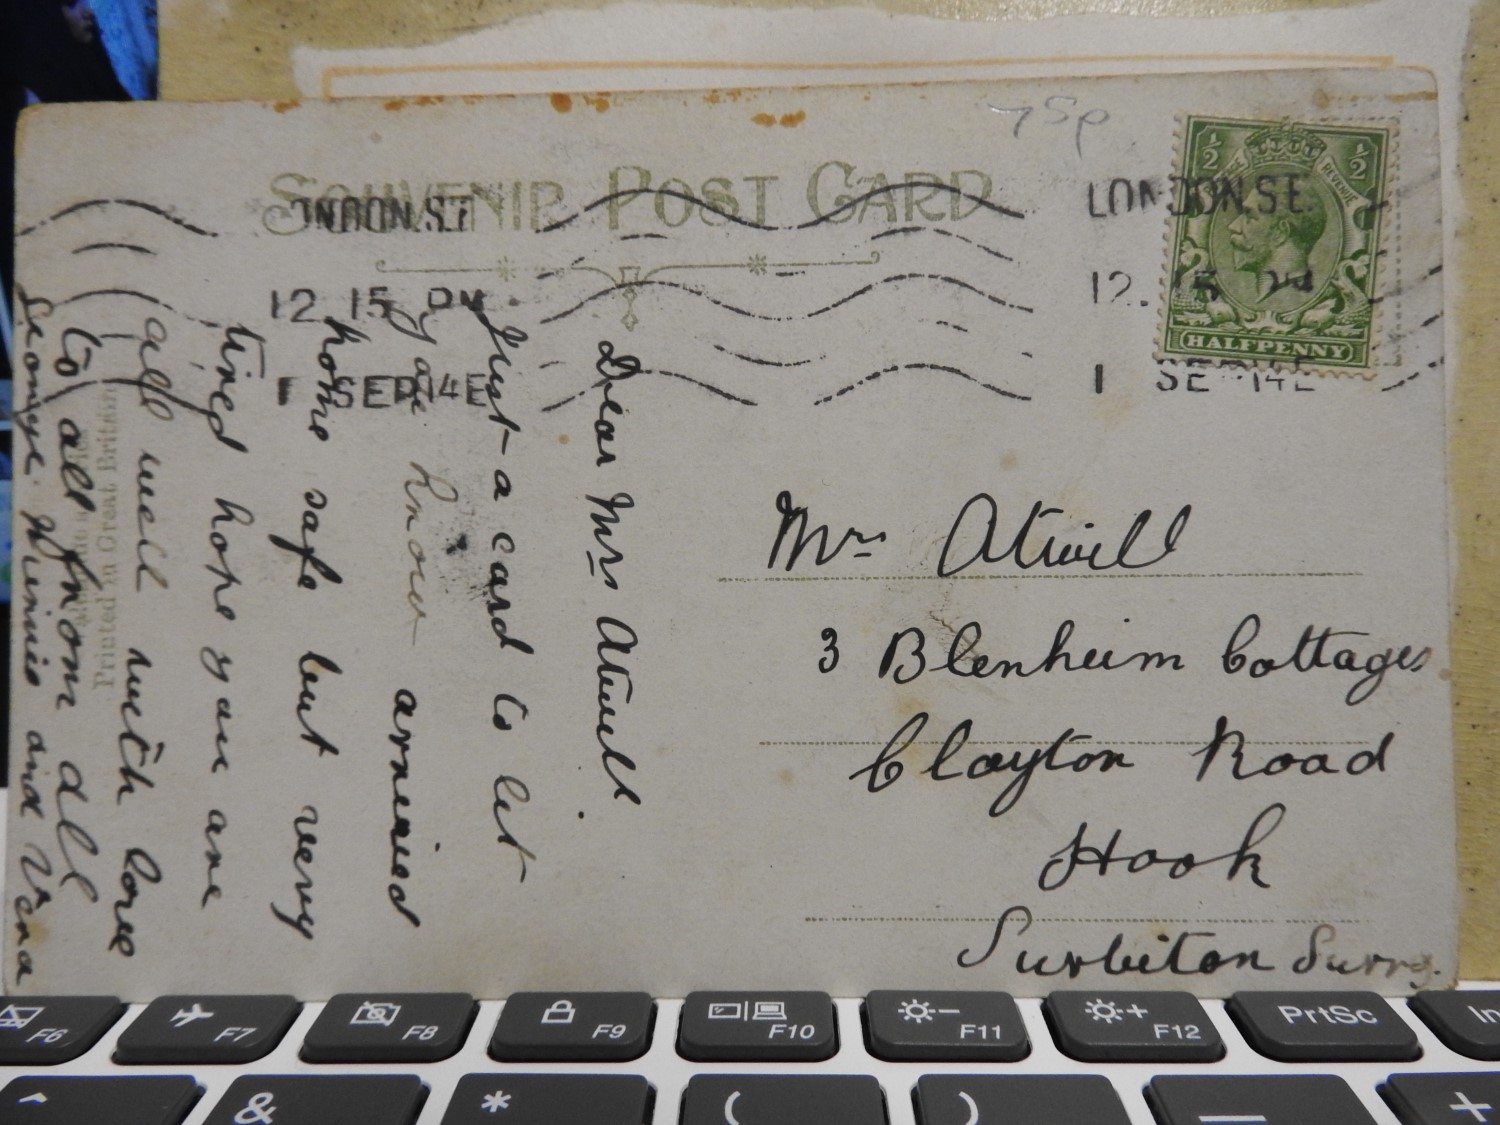 75p
SOUVENIR POST CARD
LONDON.S.E.
12.15 PM
1 SEP 14E
LONDON.S.E.
12.15 PM
1 SE 14E
½ ½
REVENUE
HALFPENNY
Dear Mrs Atwill
Just a card to let
you know arrived
home safe but very
tired hope you are
all well with love
to all from all
George Winnie and Vera
Printed in Great Britain
Mrs Atwill
3 Blenheim Cottages
Clayton Road
Hook
Surbiton Surry.
F6 F7 F8 F9 F10 F11 F12 PrtSc In
^ & * ( ) _ +